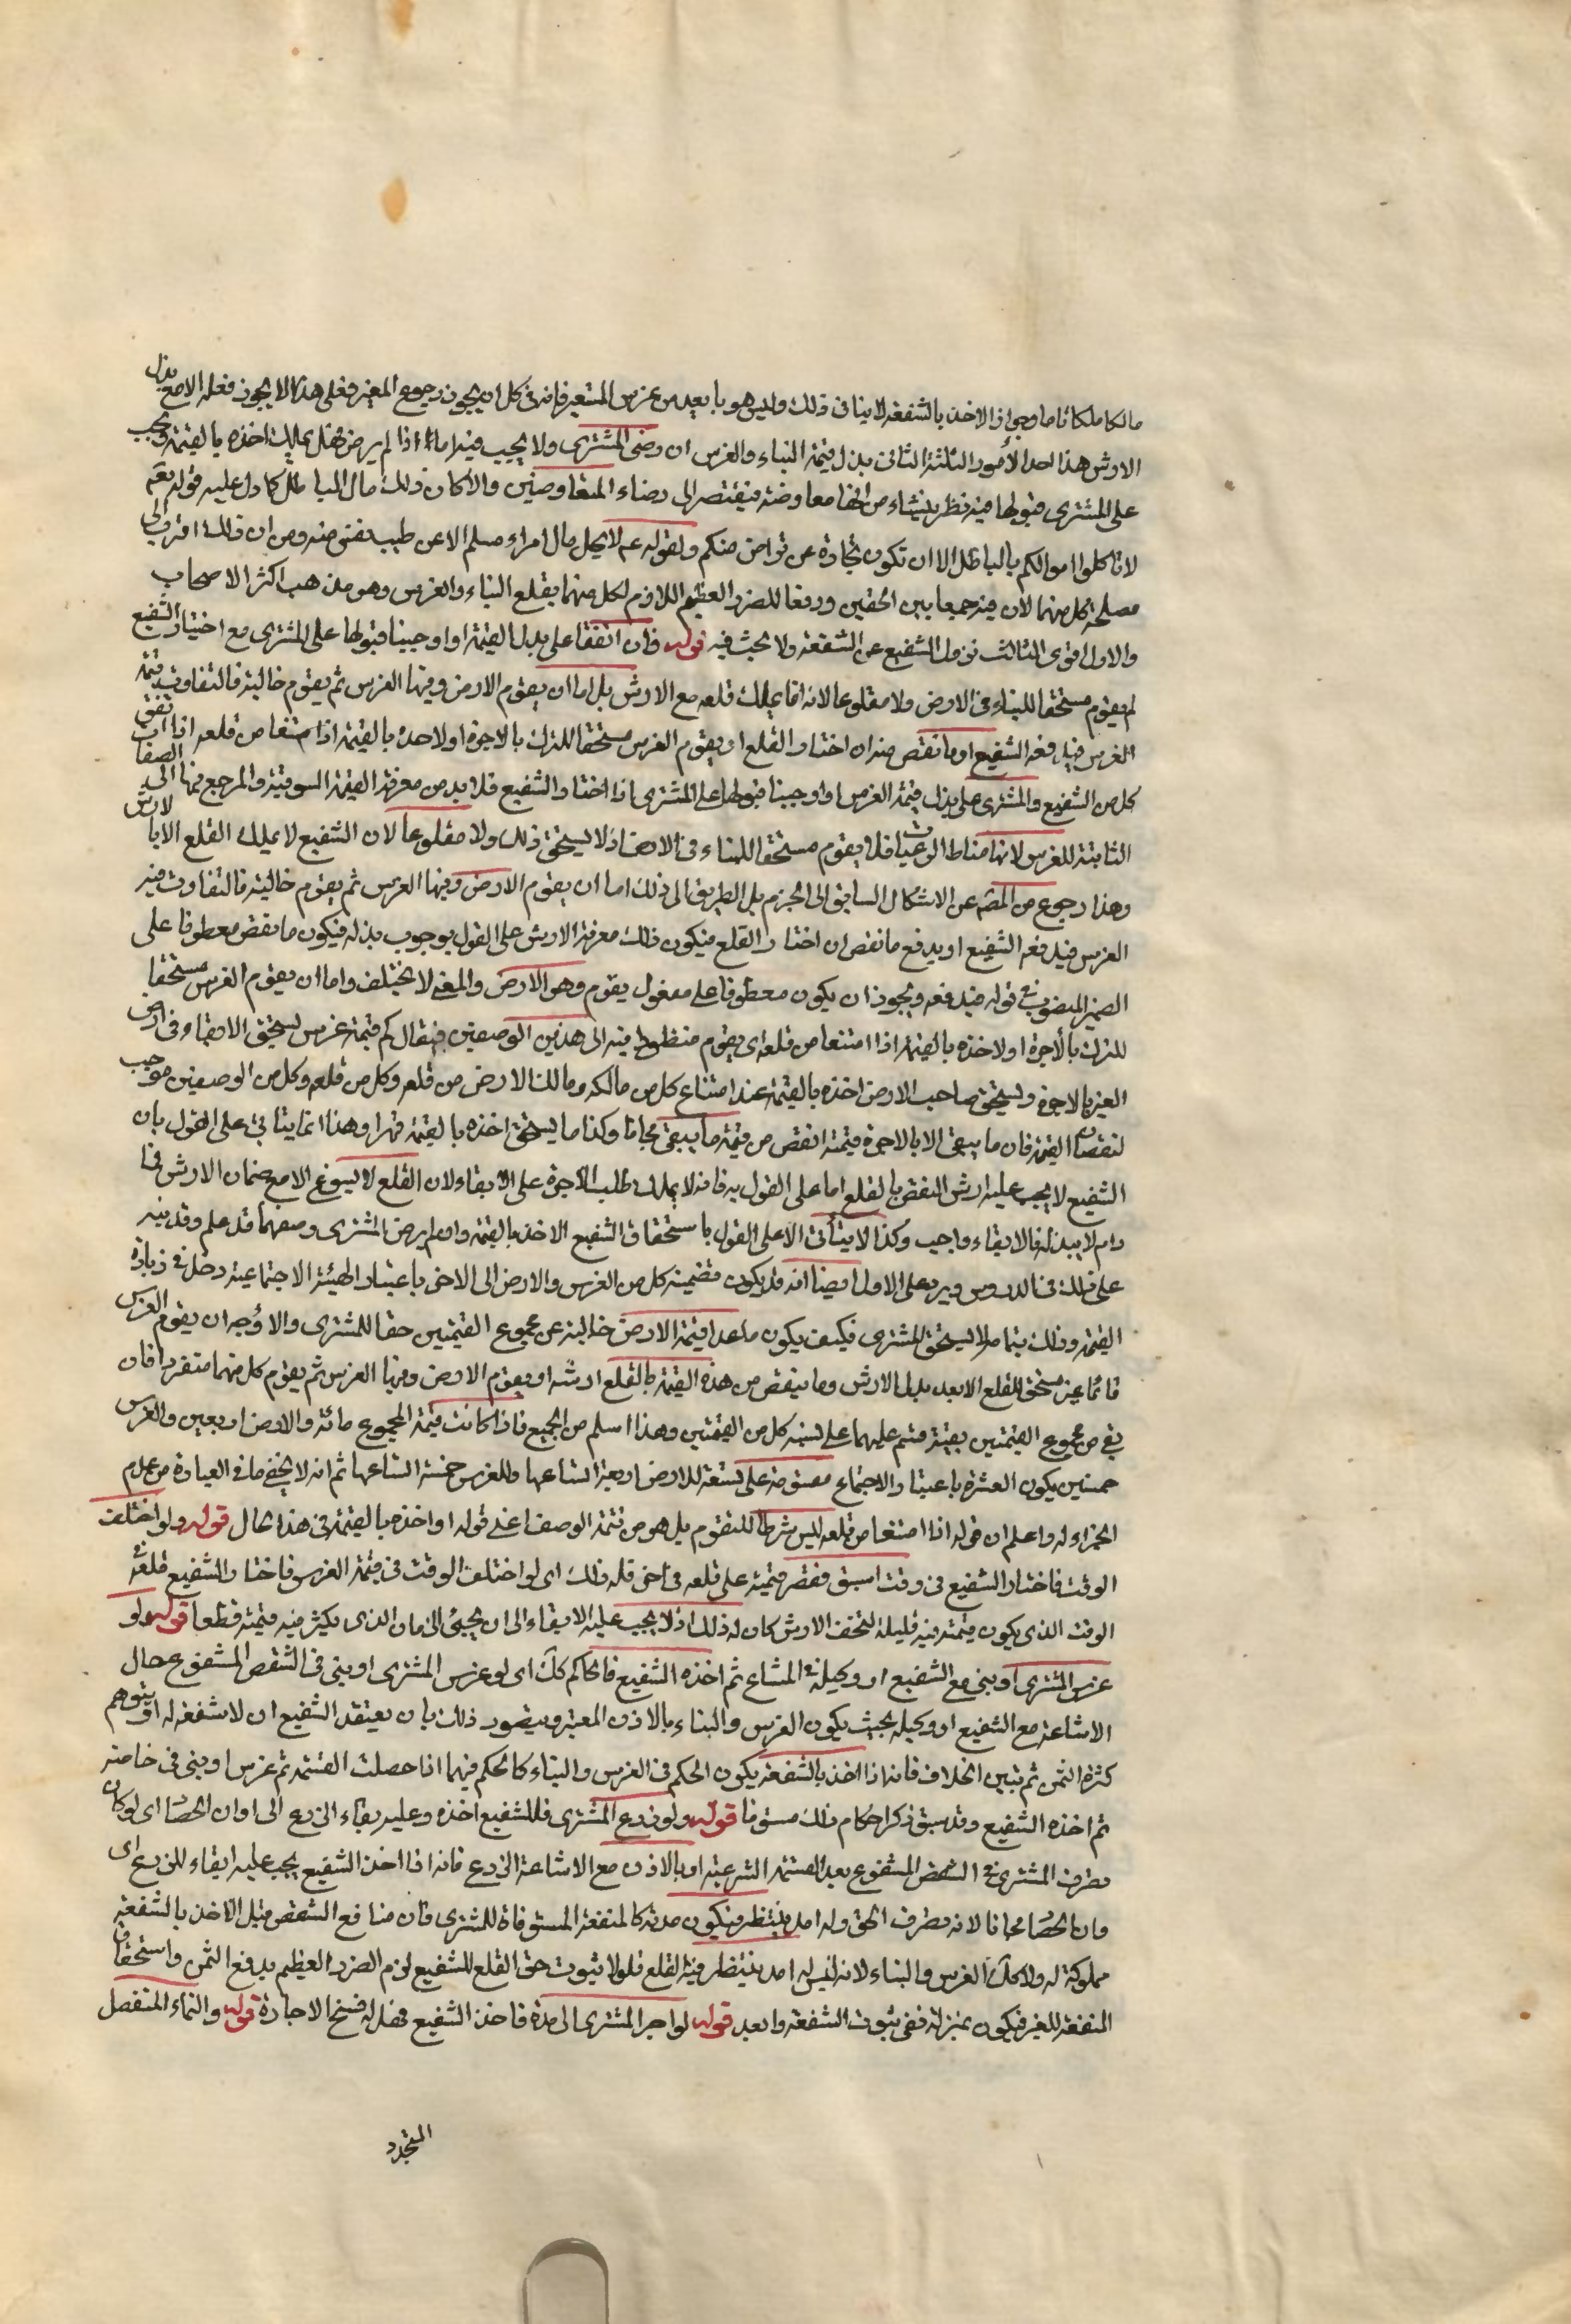 مالكا ملكا تاما وجواز الاخذ بالشفعة لا ينافى ذلك وليس هو بابعد من غرس المستعير فانه فى كل ان يجوز رجوع المعير فعلى هذا لا يجوز قلعه الا مع بذل
الارش هذا احد الأمور الثلثة الثانى بذل قيمة البناء والغرس ان رضى المشترى ولا يجب فيه اما اذا لم يرض فهل يملك اخذه بالقيمة ويجب
على المشترى قبولها فيه نظر ينشاء من انها معاوضة فيفتقر الى رضاء المتعاوضين والا كان ذلك مال الباطل كما دل عليه قوله تعم
لا تاكلوا اموالكم بالباطل الا ان تكون تجارة عن تراض منكم ولقوله عم لا يحل مال امرء مسلم الا عن طيب نفس منه ومن ان ذلك اقرب الى
مصلحة كل منهما لان فيه جمعا بين الحقين ودفعا للضرر العظيم اللازم لكل منهما بقلع البناء والغرس وهو مذهب اكثر الاصحاب
والاول اقوى الثالث نزول الشفيع عن الشفعة ولا بحث فيه قوله فان اتفقا على بذل القيمة او اوجبنا قبولها على المشترى مع اختيار الشفيع
لم يقوم مستحقا للبقاء فى الارض ولا مقلوعا لانه انما يملك قلعه مع الارش بل اما ان يقوم الارض وفيها الغرس ثم يقوم خالية فالتفاوت قيمة
الغرس فيدفعه الشفيع او ما نقص منه ان اختار القلع او يقوم الغرس مستحقا للترك بالاجرة او لاخذه بالقيمة اذا امتنعا من قلعه اذا اتفق
كل من الشفيع والمشترى على بذل قيمة الغرس او اوجبنا قبولها على المشترى اذا اختار الشفيع فلا بد من معرفة القيمة السوقية والمرجع فيها الى الصفات
الثابتة للغرس لانها مناط الرغبات فلا يقوم مستحقا للبقاء فى الارض اذ لا يستحق ذلك ولا مقلوعا لان الشفيع لا يملك القلع الا بالارش
وهذا رجوع من المصه عن الاشكال السابق الى الجزم بل الطريق الى ذلك اما ان يقوم الارض وفيها الغرس ثم يقوم خالية فالتفاوت قيمة
الغرس فيدفعه الشفيع او يدفع ما نقص ان اختار القلع فيكون ذلك معرفة الارش على القول بوجوب بذله فيكون ما نقص معطوفا على
الضمير المنصوب فى قوله فيدفعه ويجوز ان يكون معطوفا على مفعول يقوم وهو الارض والمعنى لا يختلف واما ان يقوم الغرس مستحقا
للترك بالأجرة او لاخذه بالقيمة اذا امتنعا من قلعه اى يقوم منظورا فيه الى هذين الوصفين فيقال كم قيمة غرس يستحق الابقاء فى ارض
الغير بالاجرة ويستحق صاحب الارض اخذه بالقيمة عند امتناع كل من مالكه ومالك الارض من قلعه وكل من الوصفين موجب
لنقصان القيمة فان ما يبقى الا بالاجرة قيمته انقص من قيمة ما يبقى مجانا وكذا ما يستحق اخذه بالقيمة قهرا وهذا انما يتاتى على القول بان
الشفيع لا يجب عليه ارش النقص بالقلع اما على القول به فانه لا يملك طلب الاجرة على الابقاء لان القلع لا يسوغ الا مع ضمان الارش فما
دام لا يبذله فالابقاء واجب وكذا لا يتأتى الا على القول باستحقاق الشفيع الاخذ بالقيمة وان لم يرض المشترى وضعفهما قد علم وقد نبه
على ذلك فى الدروس ويرد على الاول ايضا انه قد يكون لضميمة كل من الغرس والارض الى الاخر باعتبار الهيئة الاجتماعية دخل فى زيادة
القيمة وذلك بتمامه لا يستحقه المشترى فكيف يكون ما عدا قيمة الارض خالية عن مجموع القيمتين حقا للمشترى والاؤجه ان يقوم الغرس
قائما غير مستحق للقلع الا بعد بذل الارش وما ينقص من هذه القيمة بالقلع ارشه او يقوم الارض وفيها الغرس ثم يقوم كل منهما منفردا فان
بقى من مجموع القيمتين بقية قسم عليهما على نسبة كل من القيمتين وهذا اسلم من الجميع فاذا كانت قيمة المجموع مائة والارض اربعين والغرس
خمسين يكون العشرة باعتبار الاجتماع مفسومة على تسعة للارض اربعة اتساعها وللغرس خمسة اتساعها ثم انه لا يخفى ما فى العبارة من عدم
الجزاء له واعلم ان قوله اذا امتنعا من قلعه ليس شرطا للتقوم بل هو من تتمة الوصف اعنى قوله او اخذه بالقيمة فى هذا الحال قوله ولو اختلف
الوقت فاختار الشفيع فى وقت اسبق فقصر قيمته على قلعه فى اخر فله ذلك اى لو اختلف الوقت فى قيمة الغرس فاختار الشفيع قلعه فى
الوقت الذى يكون قيمته فيه قليلة لتخف الارش كان له ذلك اذ لا يجب عليه الابقاء الى ان يجئ الزمان الذى يكثر فيه قيمته قطعا قوله ولو
غرس المشترى او بنى مع الشفيع او وكيله فى المشاع ثم اخذه الشفيع فالحاكم كك اى لو غرس المشترى او بنى فى الشقص المشفوع حال
الاشاعة مع الشفيع او وكيله بحيث يكون الغرس والبناء بالاذن المعتبر ويتصور ذلك بان يعتقد الشفيع ان لا شفعة له او يتوهم
كثرة الثمن ثم تبين الخلاف فانه اذا اخذ بالشفعة يكون الحكم فى الغرس والبناء كالحكم فيهما اذا حصلت القسمة ثم غرس او بنى فى خاصته
ثم اخذه الشفيع وقد سبق ذكر احكام ذلك مستوفا قوله ولو زرع المشترى فللشفيع اخذه وعليه بقاء الزرع الى اوان الحصاد اى لو كان
تصرف المشترى فى الشقص المشفوع بعد القسمة الشرعية او بالاذن مع الاشاعة الزرع فانه اذا اخذ الشفيع يجب عليه ابقاء الزرع الى
وان الحصاد مجانا لانه تصرف بحق وله امد ينتظر فيكون مدته كالمنفعة المستوفاة للمشترى فان منافع الشقص قبل الاخذ بالشفعة
مملوكة له ولا كك الغرس والبناء لانه ليس له امد ينتظر فيه القلع فلو لا ثبوت حق القلع للشفيع لزم الضرر العظيم بدفع الثمن واستحقاق
المنفعة للغير فيكون بمنزلة نفى ثبوت الشفعة وابعد قوله لو اجر المشترى الى مدة فاخذ الشفيع فهل له فسخ الاجارة قوله والنماء المنفصل
المتجدد